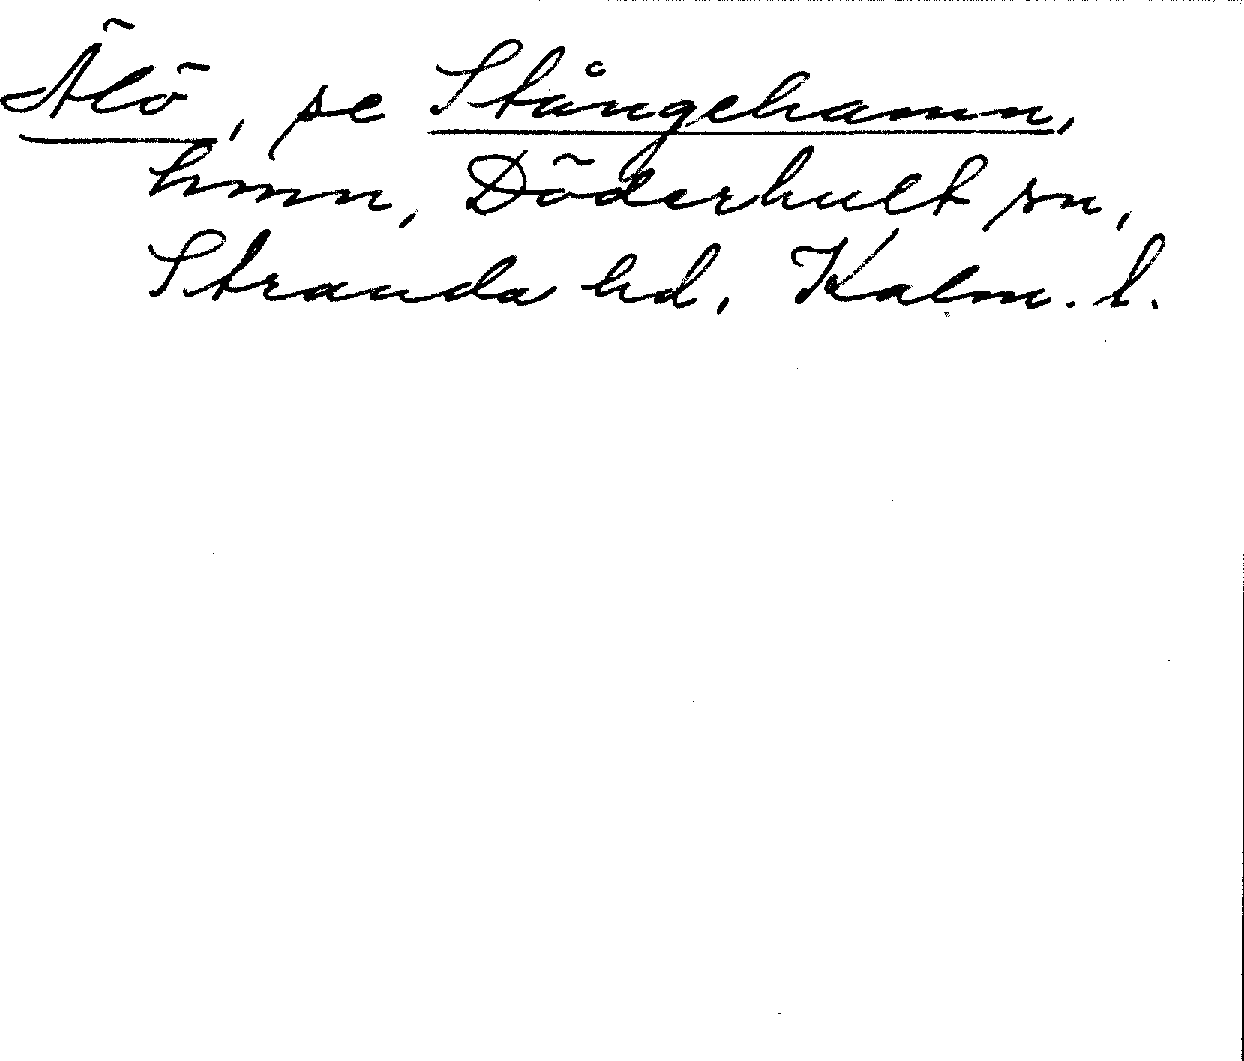 Älö, se Stångehamn,
hmn, Döderhult sn,
Stranda hd, Kalm. l.